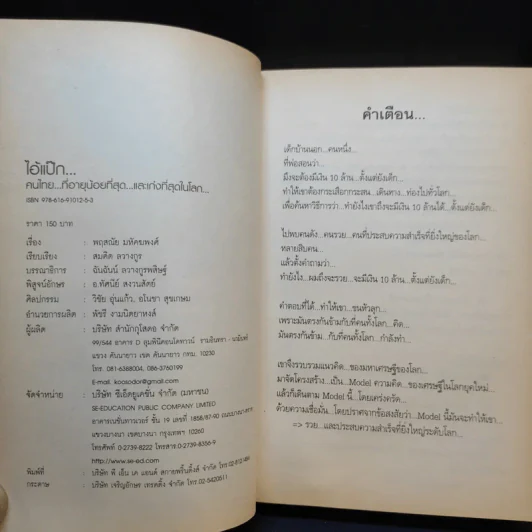 ไอ้แป๊ก...
คนไทย...ที่อายุน้อยที่สุด...และเก่งที่สุดในโลก...
ISBN 978-616-91012-5-3
ราคา 150 บาท
เรื่อง : พฤสณัย มหัคฆพงศ์
เรียบเรียง : สมคิด ลวางกูร
บรรณาธิการ : ฉันฉันน์ ลวางกูรพสิษฐ์
พิสูจน์อักษร : อ.ทัศนีย์ สงวนสัตย์
ศิลปกรรม : วิชัย อุ่นแก้ว, อโนชา สุขเกษม
อำนวยการผลิต : พัชรี งามนิตยาหงส์
ผู้ผลิต : บริษัท สำนักกุโสดอ จำกัด
99/544 อาคาร D ลุมพินีคอนโดทาวน์ รามอินทรา - นวมินทร์
แขวง คันนายาว เขต คันนายาว กทม. 10230
โทร. 081-6368004, 086-3760199
E-mail koosodor@gmail.com
จัดจำหน่าย : บริษัท ซีเอ็ดยูเคชั่น จำกัด (มหาชน)
SE-EDUCATION PUBLIC COMPANY LIMITED
อาคารเนชั่นทาวเวอร์ ชั้นที่ 19 เลขที่ 1858/87-90 ถนนบางนา-ตราด
แขวงบางนา เขตบางนา กรุงเทพฯ 10260
โทรศัพท์ 0-2739-8222 โทรสาร.0-2739-8356-9
http://www.se-ed.com
พิมพ์ที่ : บริษัท พี เอ็น เค แอนด์ สกายพริ้นติ้งส์ จำกัด
กระดาษ : บริษัท เจริญอักษร เทรดดิ้ง จำกัด โทร.02-5420511
คำเตือน...
เด็กบ้านนอก...คนหนึ่ง...
ที่พ่อสอนว่า...
มึงจะต้องมีเงิน 10 ล้าน...ตั้งแต่ยังเด็ก...
ทำให้เขาต้องกระเสือกกระสน...เดินทาง...ท่องไปทั่วโลก...
เพื่อค้นหาวิธีการว่า...ทำยังไงเขาถึงจะมีเงิน 10 ล้านได้...ตั้งแต่ยังเด็ก...
ไปพบคนดัง...คนรวย...คนที่ประสบความสำเร็จที่ยิ่งใหญ่ของโลก...
หลายสิบคน...
แล้วตั้งคำถามว่า...
ทำยังไง...ผมถึงจะรวย...จะมีเงิน 10 ล้าน...ตั้งแต่ยังเด็ก...
คำตอบที่ได้...ทำให้เขา...ขนหัวลุก...
เพราะมันตรงกันข้ามกับที่คนทั้งโลก...คิด...
มันตรงกันข้าม...กับที่คนทั้งโลก...กำลังทำ...
เขาจึงรวบรวมแนวคิด...ของมหาเศรษฐีของโลก...
มาจัดโครงสร้าง...เป็น...Model ความคิด...ของเศรษฐีในโลกยุคใหม่...
แล้วก็เดินตาม Model นี้...โดยเคร่งครัด...
ด้วยความเชื่อมั่น...โดยปราศจากข้อสงสัยว่า...Model นี้มันจะทำให้เขา...
=> รวย...และประสบความสำเร็จที่ยิ่งใหญ่ระดับโลก...